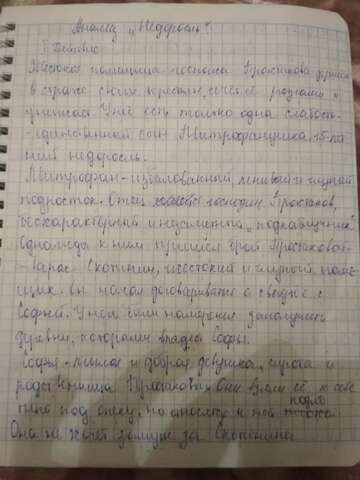 Анализ „Недоросль"
Жестокая помещица госпожа Простакова держит
в страхе своих крестьян, сечёт её розгами и
унижает. У неё есть только одна слабость-
-единственный сын Митрофанушка, 15-лет
ний недоросль.
Митрофан-избалованный, ленивый и глупый
подросток. Отец господин Простаков,
бесхарактерный и подкаблучник.
однажды к ним пришёл брат Простаковой-
-Тарас Скотинин, жестокий и глупый поме-
щик. он начал договариваться о свадьбе с
Софьей. У него были намерения заполучить
деревни, которыми владела Софья.
Софья-милая и добрая девушка, сирота и
родственница Простаковых. Они взяли её к себе
под опеку, но относятся к ней подло
Она не хочет замуж за Скотинина